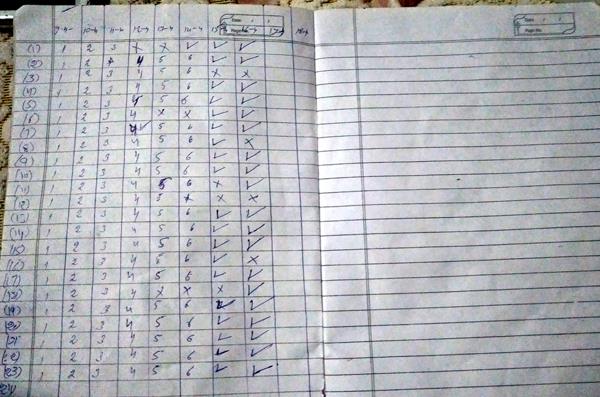 9-4- 10-4 11-4 12-4 13-4 14-4 15-4 16-4 17-4 18-4
(1) 1 2 3 x x ✓ ✓ ✓
(2) 1 2 4 5 6 ✓ ✓
(3) 1 2 3 4 5 6 x x
(4) 1 2 3 4 5 6 ✓ ✓
(5) 1 2 3 4 5 6 ✓ ✓
(6) 1 2 3 4 x x ✓ ✓
(7) 1 2 3 4 ✓ 5 6 ✓ ✓
(8) 1 2 3 4 5 6 ✓ x
(9) 1 2 3 4 5 6 ✓ ✓
(10) 1 2 3 4 5 6 ✓ ✓
(11) 1 2 3 4 5 6 x ✓
(12) 1 2 3 4 5 x x x
(13) 1 2 3 4 5 6 ✓ ✓
(14) 1 2 3 4 5 6 ✓ ✓
(15) 1 2 3 4 5 6 ✓ ✓
(16) 1 2 3 4 5 6 ✓ x
(17) 1 2 3 4 5 6 ✓ ✓
(18) 1 2 3 4 x x x ✓
(19) 1 2 3 4 5 6 ✓ ✓
(20) 1 2 3 4 5 6 ✓ ✓
(21) 1 2 3 4 5 6 ✓ ✓
(22) 1 2 3 4 5 6 ✓ ✓
(23) 1 2 3 4 5 6 ✓ ✓
(24)
Date:
Page No.